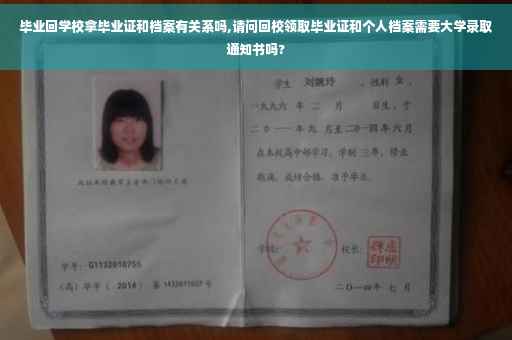 毕业回学校拿毕业证和档案有关系吗,请问回校领取毕业证和个人档案需要大学录取
通知书吗?
学生 刘婉玲 ,性别 女 ,
一九九六 年 二 月 日生,于
二〇一一年九 月至二〇一四年六月
在本校高中部学习,学制 三年,修业
期满,成绩合格,准予毕业。
学校: 校长:
学号: G1132010755
(高)毕字( 2014 )第 1432011027 号
二〇一四年 七 月